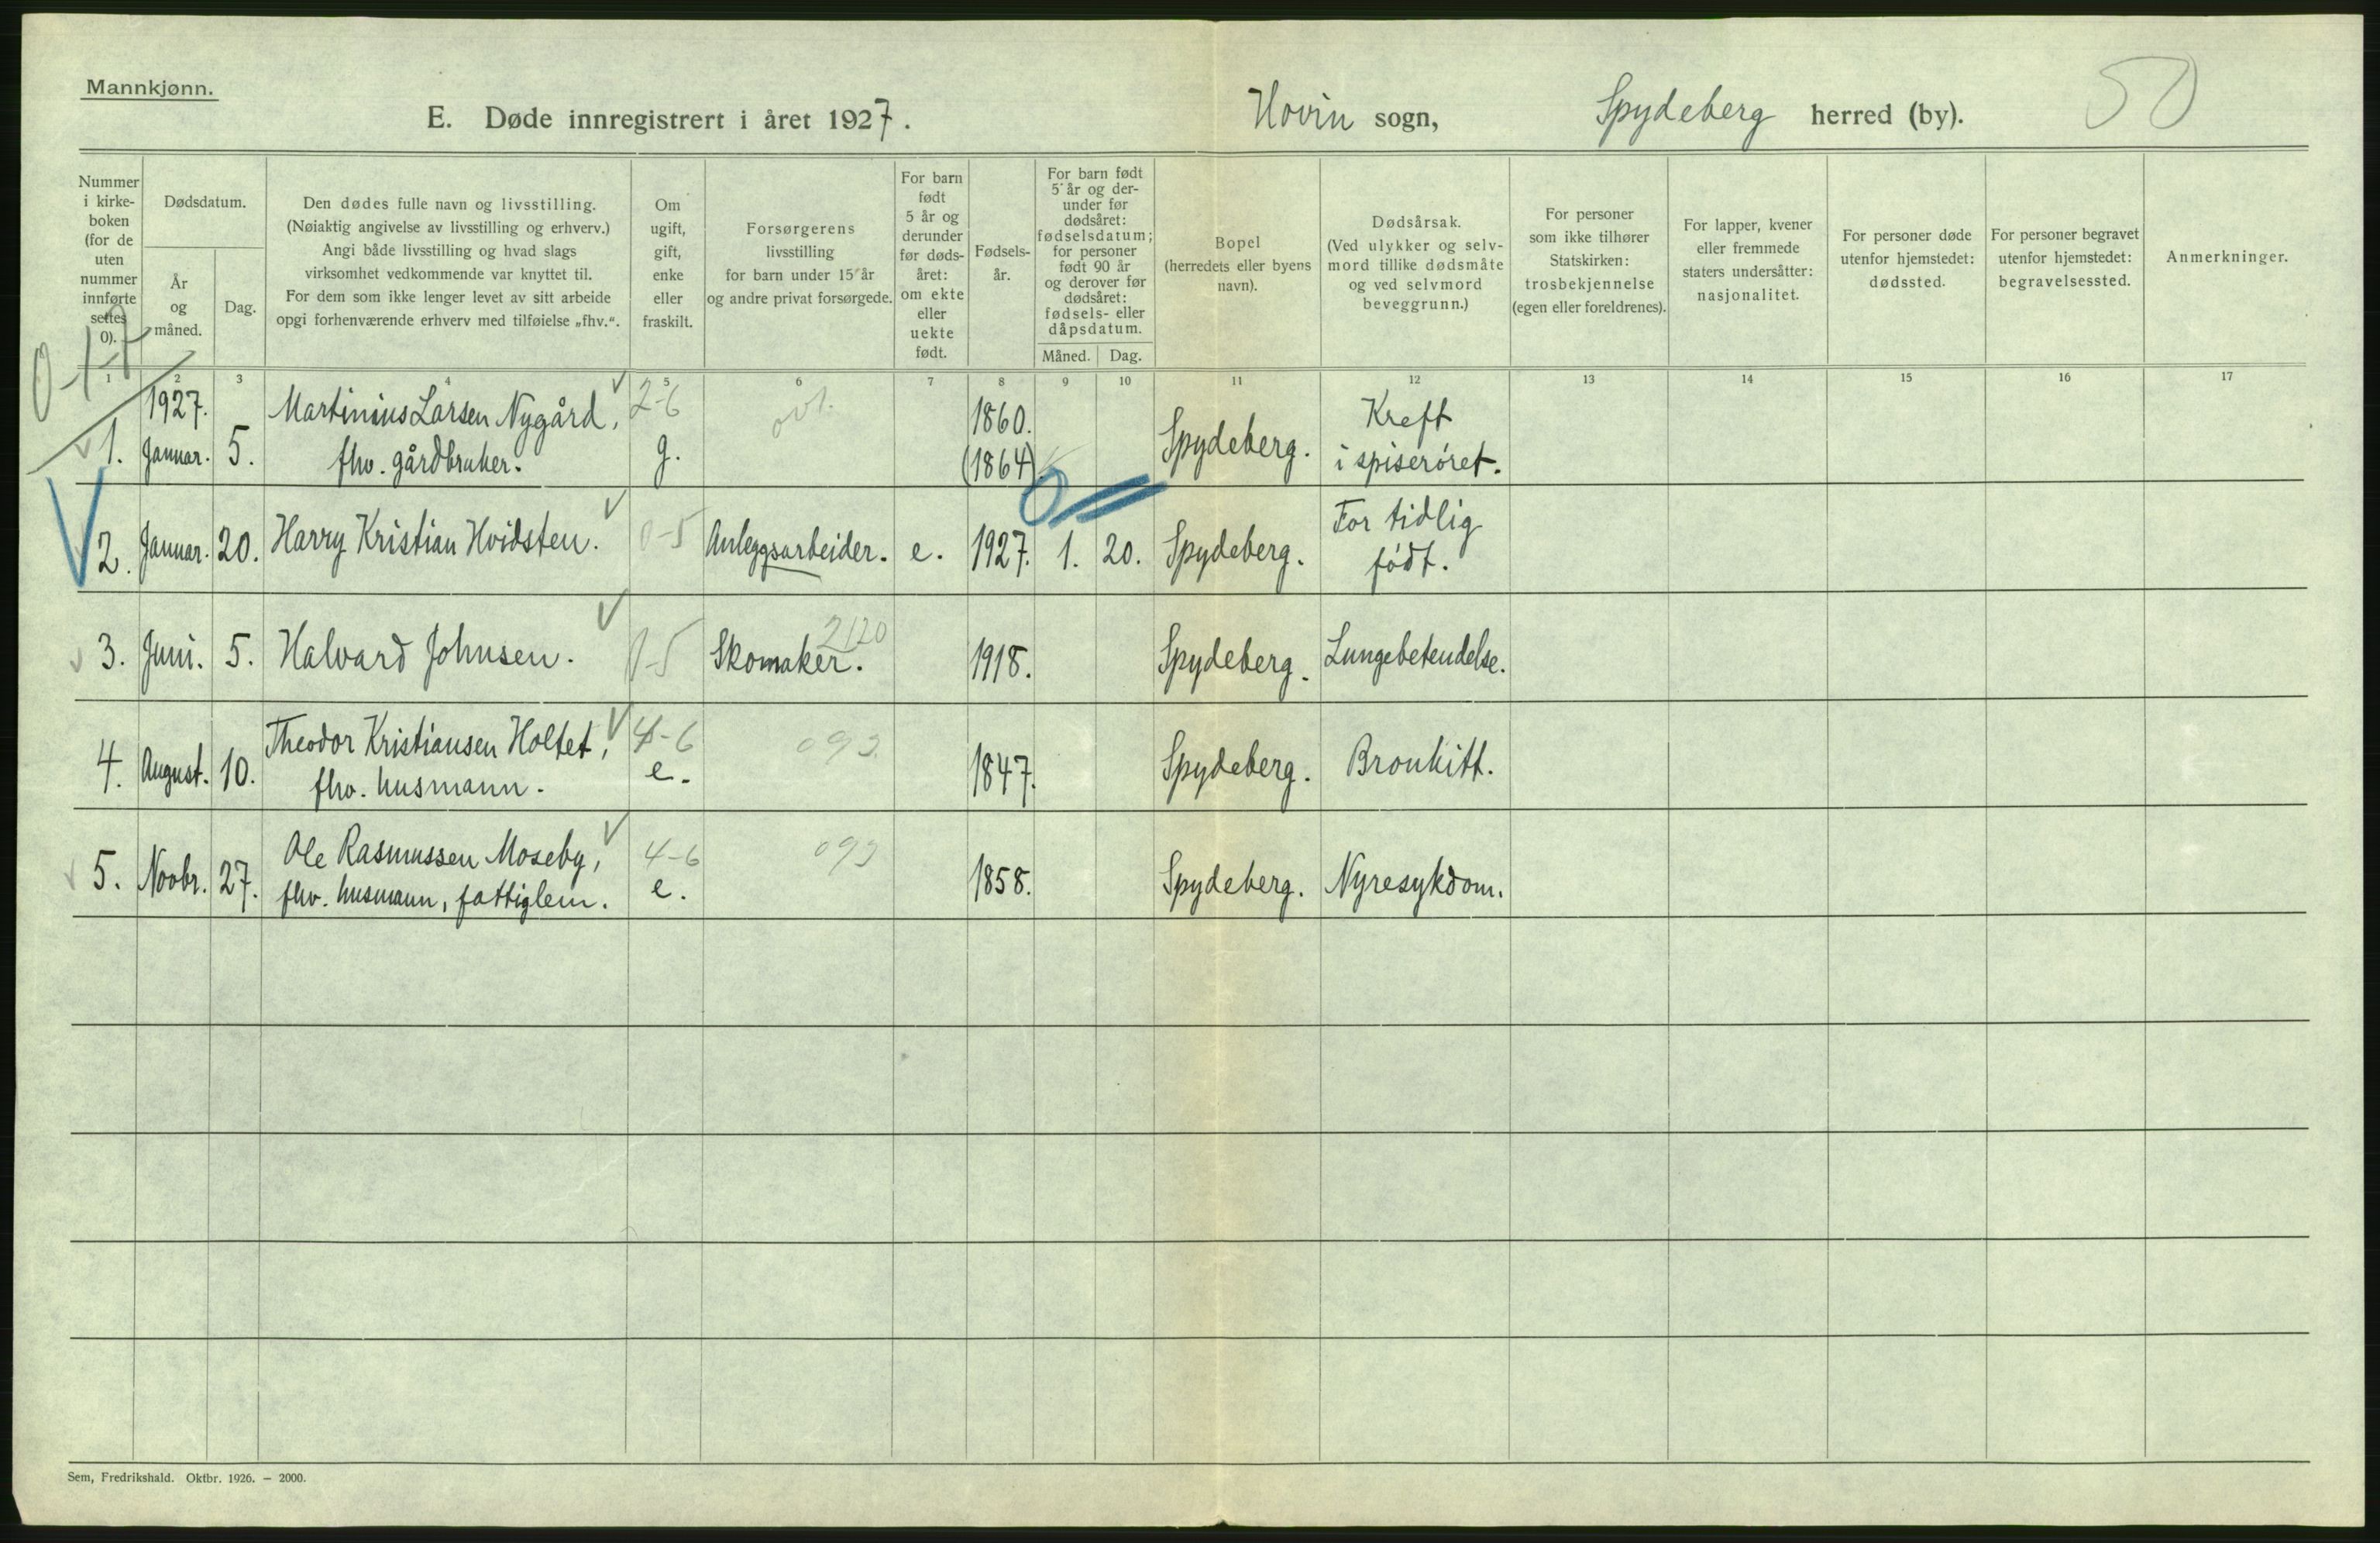 Mannkjønn.
E. Døde innregistrert i året 1927.
Hovin sogn,
Spydeberg herred (by).
50
Nummer
i kirke-
boken
(for de
uten
nummer
innførte
settes
0).
Dødsdatum.
År
og
måned.
Dag.
Den dødes fulle navn og livsstilling.
(Nøiaktig angivelse av livsstilling og erhverv.)
Angi både livsstilling og hvad slags
virksomhet vedkommende var knyttet til.
For dem som ikke lenger levet av sitt arbeide
opgi forhenværende erhverv med tilføielse „fhv.“.
Om
ugift,
gift,
enke
eller
fraskilt.
Forsørgerens
livsstilling
for barn under 15 år
og andre privat forsørgede.
For barn
født
5 år og
derunder
før døds-
året:
om ekte
eller
uekte
født.
Fødsels-
år.
For barn født
5 år og der-
under før
dødsåret:
fødselsdatum;
for personer
født 90 år
og derover før
dødsåret:
fødsels- eller
dåpsdatum.
Måned. Dag.
Bopel
(herredets eller byens
navn).
Dødsårsak.
(Ved ulykker og selv-
mord tillike dødsmåte
og ved selvmord
beveggrunn.)
For personer
som ikke tilhører
Statskirken:
trosbekjennelse
(egen eller foreldrenes).
For lapper, kvener
eller fremmede
staters undersåtter:
nasjonalitet.
For personer døde
utenfor hjemstedet:
dødssted.
For personer begravet
utenfor hjemstedet:
begravelsessted.
Anmerkninger.
1 2 3 4 5 6 7 8 9 10 11 12 13 14 15 16 17
1927. Martinius Larsen Nygård, 2-6 1860. Kreft
1. Januar. 5. fhv. gårdbruker. g. (1864) Spydeberg. i spiserøret.
2. Januar. 20. Harry Kristian Hvidsten. 0-5 Anleggsarbeider. e. 1927. 1. 20. Spydeberg. For tidlig
født.
3. Juni. 5. Halvard Johnsen. Skomaker. 2120 1918. Spydeberg. Lungebetendelse.
Theodor Kristiansen Holtet, 4-6
4. August. 10. fhv. husmann. e. 1847. Spydeberg. Bronkitt.
Ole Rasmussen Moseby, 4-6
5. Novbr. 27. fhv. husmann, fattiglem. e. 1858. Spydeberg. Nyresykdom.
Sem, Fredrikshald. Oktbr. 1926. — 2000.